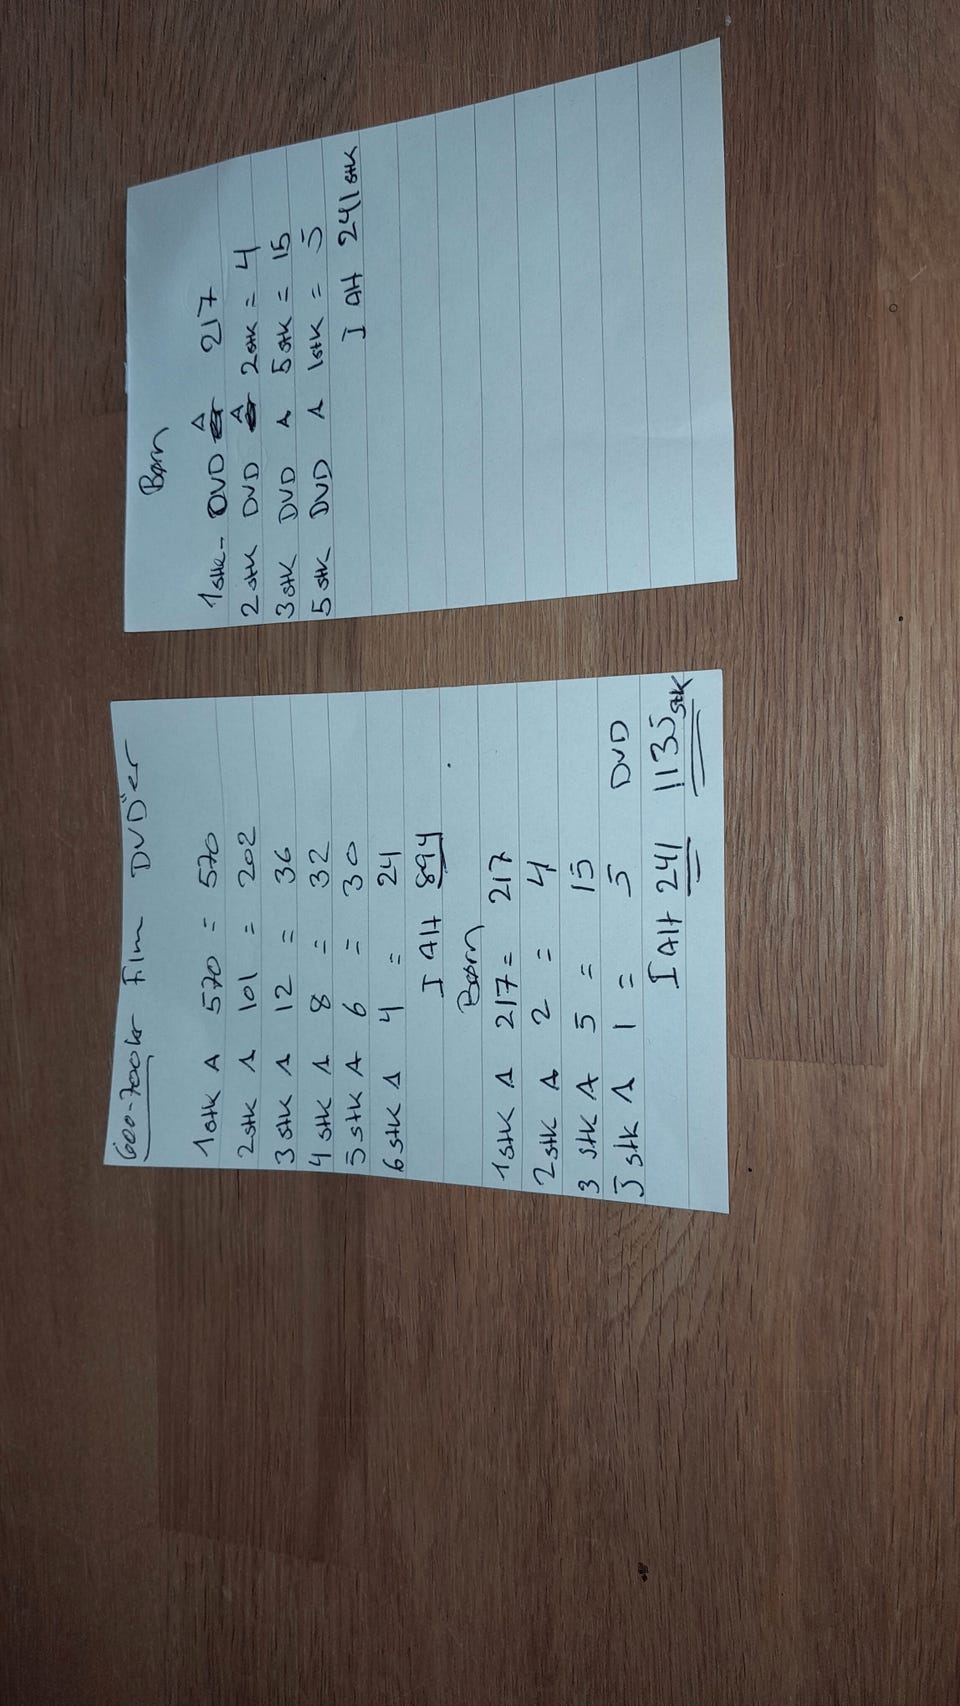 600-700kr Film DVD"er
1 stk A 570 = 570
2 stk A 101 = 202
3 stk A 12 = 36
4 stk A 8 = 32
5 stk A 6 = 30
6 stk A 4 = 24
I Alt 894
Børn
1 stk A 217 = 217
2 stk A 2 = 4
3 stk A 5 = 15
5 stk A 1 = 5 DVD
I Alt 241 1135 stk
Børn
1 stk- DVD A 217
2 stk DVD A 2 stk = 4
3 stk DVD A 5 stk = 15
5 stk DVD A 1 stk = 5
I Alt 241 stk